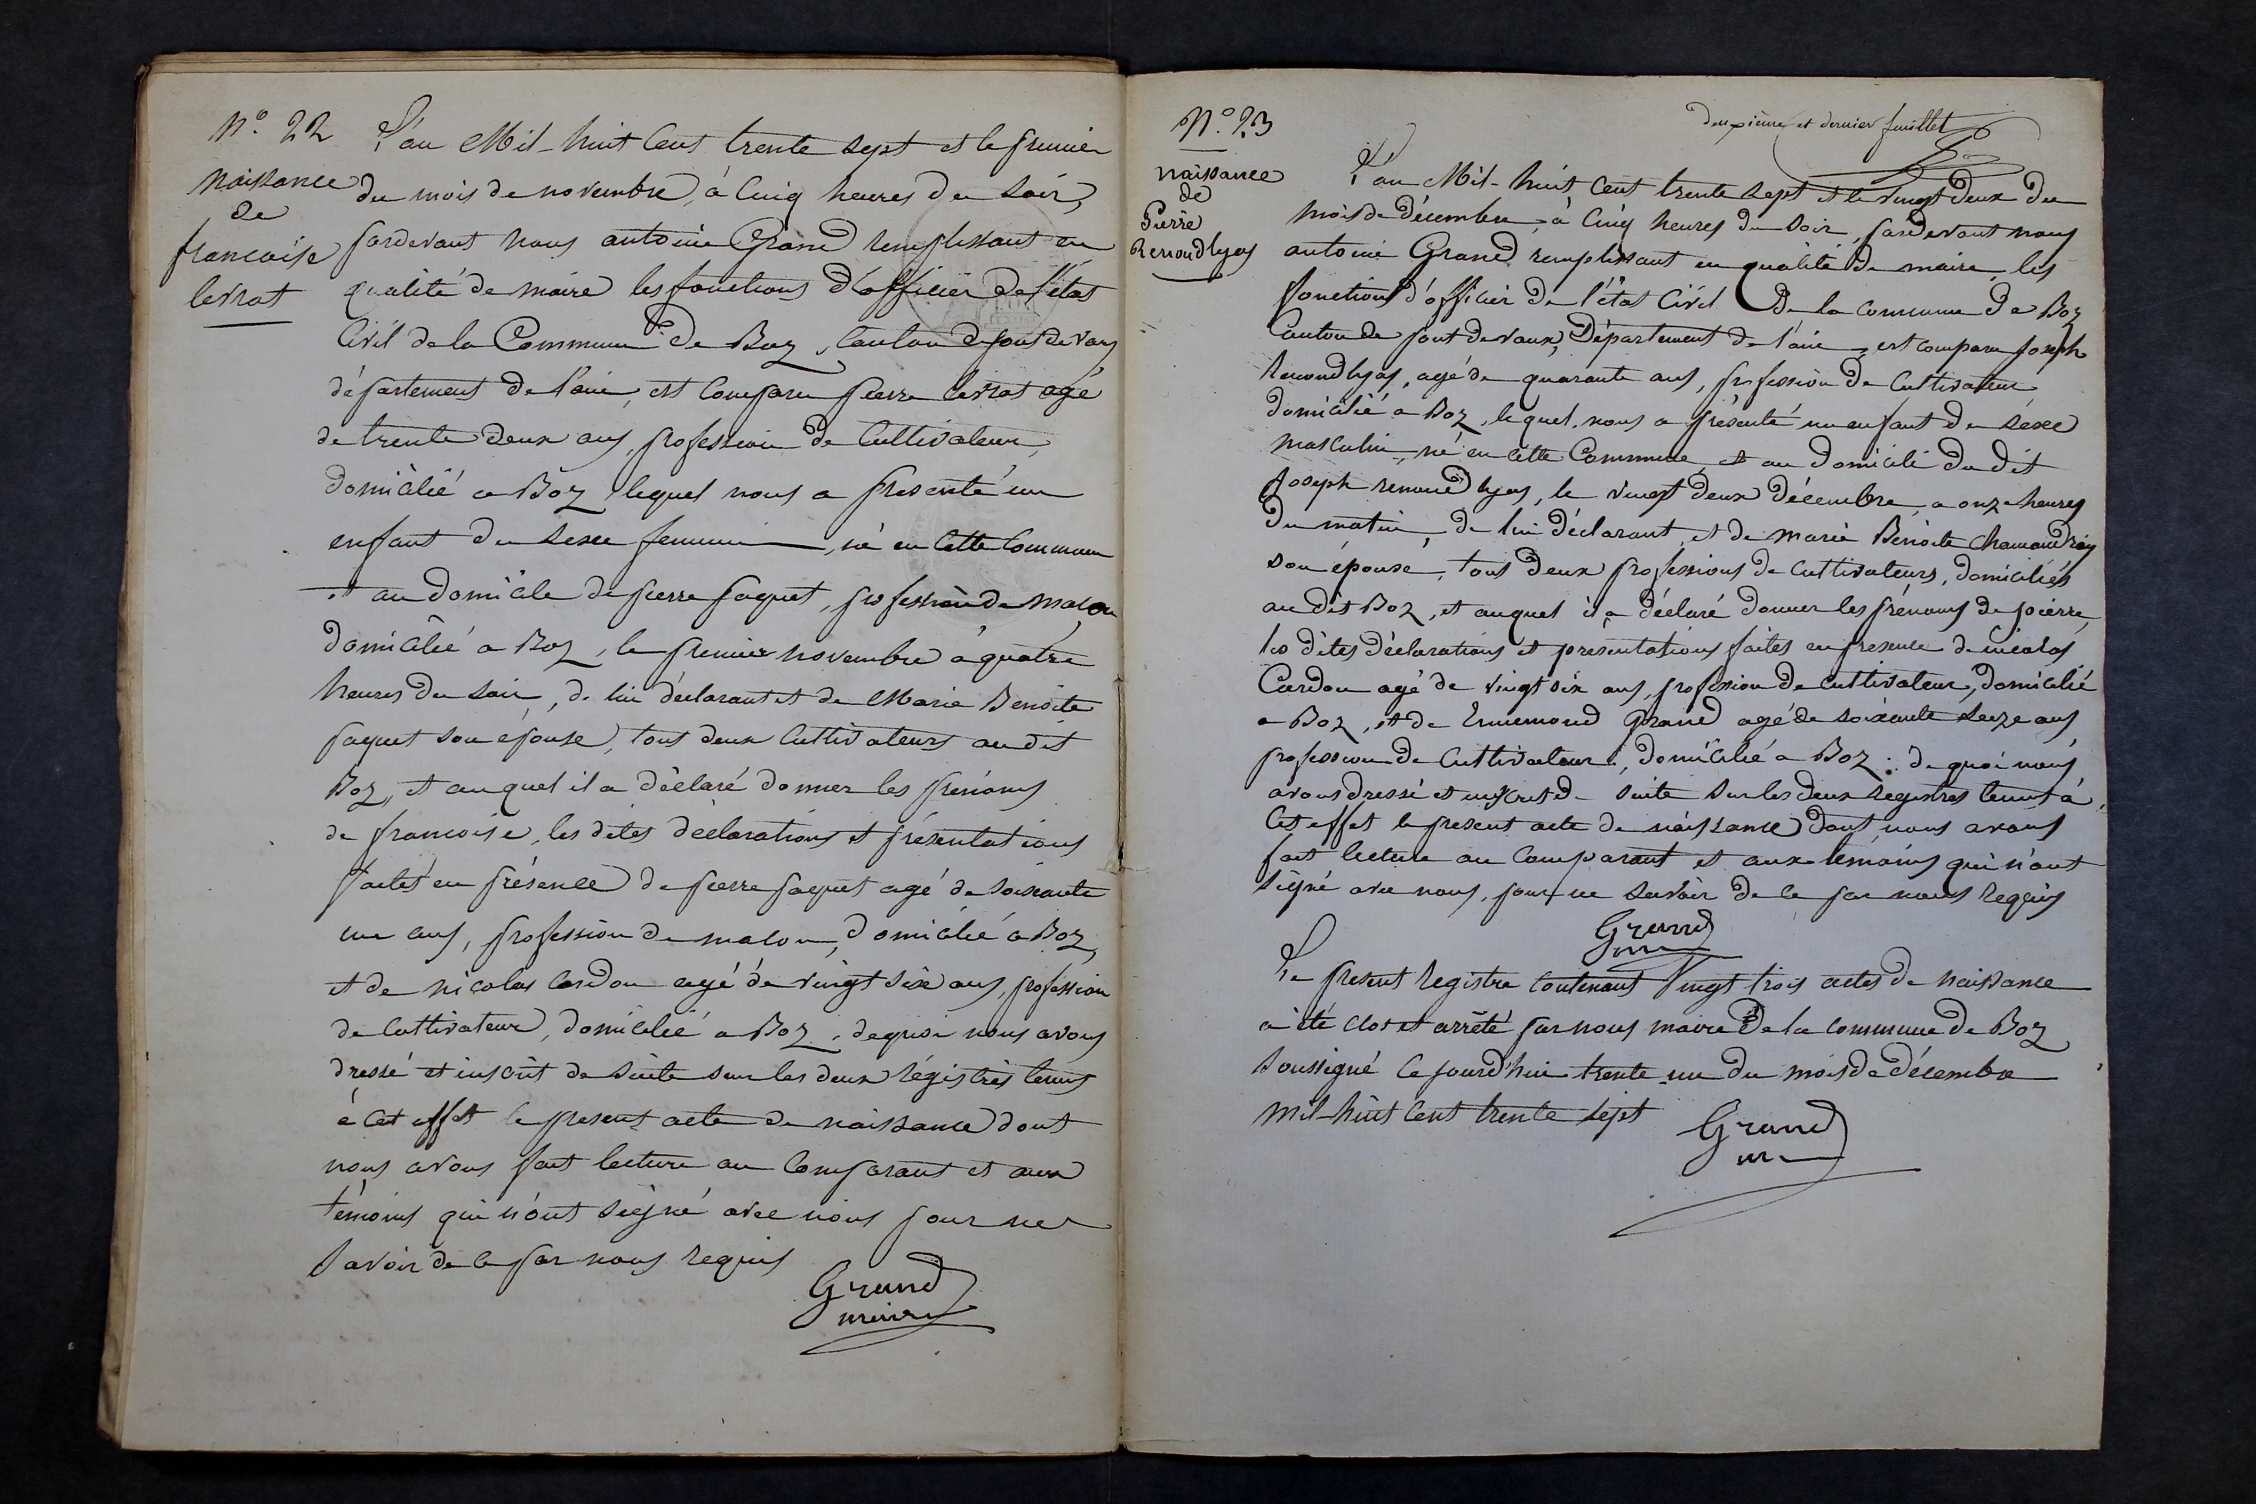 N.° 22
Naissance
de
francoise
levrat
L'an Mil-huit Cent trente sept et le premier
du mois de novembre, à Cinq heures du Soir,
pardevant nous antoine Grand remplissant en
qualité de maire les fonctions d'officier de l'état
Civil de la Commune de Boz, Canton de pont de vaux
département de l'ain, est Comparu pierre levrat agé
de trente deux ans, profession de Cultivateur,
domicilié a Boz lequel nous a présenté un
enfant du Sexe feminin, né en Cette Commune
et au domicile de pierre paquet, profession de maçon
domicilié a Boz, le premier novembre à quatre
heures du Soir, de lui déclarant et de Marie Benoite
paquet son épouse, tous deux Cultivateurs au dit
Boz, et auquel il a déclaré donner les prénoms
de francoise, les dites déclarations et présentations
faites en présence de pierre paquet agé de Soixante
un ans, profession de macon, domicilié a Boz,
et de nicolas Cardon agé de vingt Six ans, profession
de Cultivateur, domicilié a Boz. de quoi nous avons
dressé et inscrit de Suite sur les deux régistres tenus
à Cet effet le present acte de naissance dont
nous avons fait lecture au Comparant et aux
témoins qui n'ont Signé avec nous pour ne
Savoir de ce par nous requis
Grand
maire
deuxième et dernier feuillet
N.° 23
naissance
de
Pierre
Renoud lyas
L'an Mil-huit Cent trente sept et le vingt deux du
mois de décembre, à Cinq heures du Soir, pardevant nous
antoine Grand remplissant en qualité de maire les
fonctions d'officier de l'état Civil de la commune de Boz
Canton de pont de vaux, Département de l'ain, est comparu Joseph
Renoud lyas, agé de quarante ans, profession de Cultivateur
domicilié a Boz, lequel nous a présenté un enfant du Séxe
masculin, né en cette Commune, et au domicile du dit
Joseph renoud lyas, le vingt deux décembre a onze heures
du matin, de lui déclarant, et de marie Benoite Chamandray
son épouse, tous deux professions de Cultivateurs, domiciliés
au dit Boz, et auquel il a déclaré donner les prénoms de pierre,
les dites déclarations et presentations faites en presence de nicolas
Cardon agé de vingt six ans, profession de Cultivateur, domicilié
a Boz, et de Ennemond Grand agé de soixante seize ans
profession de Cultivateur, domicilié a Boz: de quoi nous
avons dressé et inscrit de Suite Sur les deux Registres tenus à
Cet effet le present acte de naissance dont nous avons
fait lecture au Comparant et aux témoins qui n'ont
Signé avec nous, pour ne Savoir de ce par nous requis
Grand
Le present Registre Contenant Vingt trois actes de naissance
a été clos et arrêté par nous maire de la commune de Boz
Soussigné Ce jourd'hui trente un du mois de décembre
mil-huit Cent trente sept
Grand